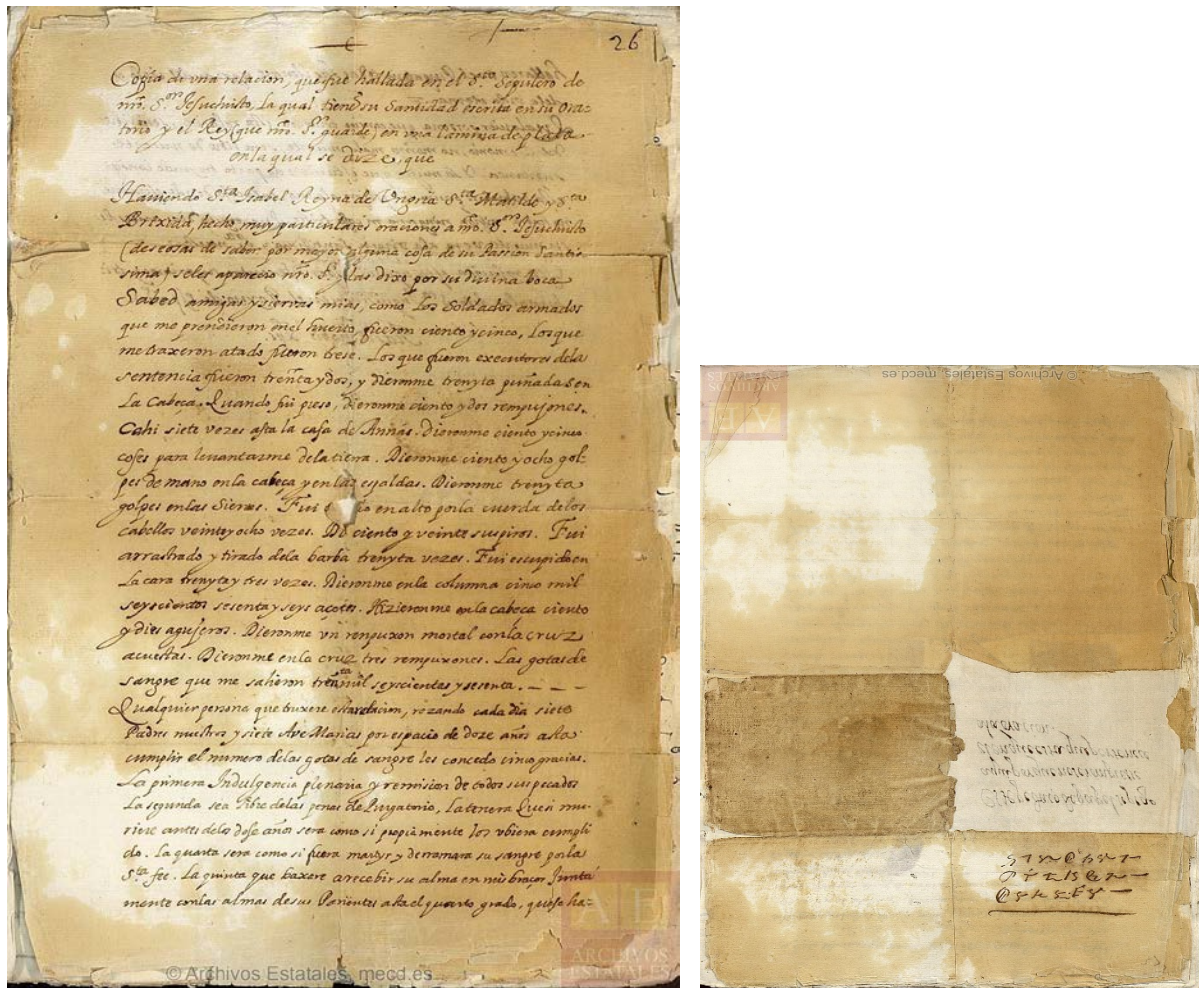 26
Copia de vna relacion, que fue hallada en el S.to Sepulcro de
nrõ. S.or Jesuchristo, la qual tiene su Santidad escrita en su ora-
torio y el Rey (que nrõ. S.r guarde) en vna lamina de plata
en la qual se dize, que
Haviendo S.ta Isabel Reyna de Vngria S.ta Matilde y S.ta
Brixida, hecho muy particulares oraciones a nrõ. S.or Jesuchristo
(deseosas de saber por mayor alguna cosa de su Passion Santis-
sima) se les aparecio nrõ. S.r y las dixo por su diuina boca
Sabed amigas y sieruas mias, como los Soldados armados
que me prendieron en el huerto, fueron ciento y cinco, Los que
me traxeron atado fueron trese. Los que fueron executores dela
sentencia fueron trenta y dos, y dieronme trenyta puñadas en
La Cabeça. Quando fui preso, dieronme ciento y dos rempujones.
Cahi siete vezes asta la casa de Annás. Dieronme ciento y cinco
coses para levantarme de la tierra. Dieronme ciento y ocho gol-
pes de mano en la cabeça y en las espaldas. Dieronme trenyta
golpes en las Sienes. Fui en alto por la cuerda de los
cabellos veinte y ocho vezes. Di ciento y veinte suspiros. Fui
arrastrado y tirado dela barba trenyta vezes. Fui escupido en
La cara trenyta y tres vezes. Dieronme en la columna cinco mil
seyscientos sesenta y seys açotes. Hizieronme en la cabeça ciento
y dies agujeros. Dieronme vn renpuxon mortal con la cruz
acuestas. Dieronme en la cruz tres rempuxones. Las gotas de
sangre que me salieron trenta mil seyscientas y sesenta. - - -
Qualquier persona que truxere esta relacion, rezando cada dia siete
Padres nuestros y siete Ave Marias por espacio de doze años asta
cumplir el numero delas gotas de sangre les concedo cinco gracias.
La primera Indulgencia plenaria y remision de todos sus pecados
La segunda sea libre delas penas de Purgatorio, La tercera Que si mu-
riere antes delos dose años sera como si propiamente los vbiera cumpli
do. La quarta sera como si fuera martyr y derramara su sangre por la
S.ta fee. La quinta que baxere a recebir su alma en mis braços Junta
mente con las almas de sus Parientes asta el quarto grado, que se ha-
© Archivos Estatales, mecd.es
ARCHIVOS
ESTATALES
© Archivos Estatales, mecd.es